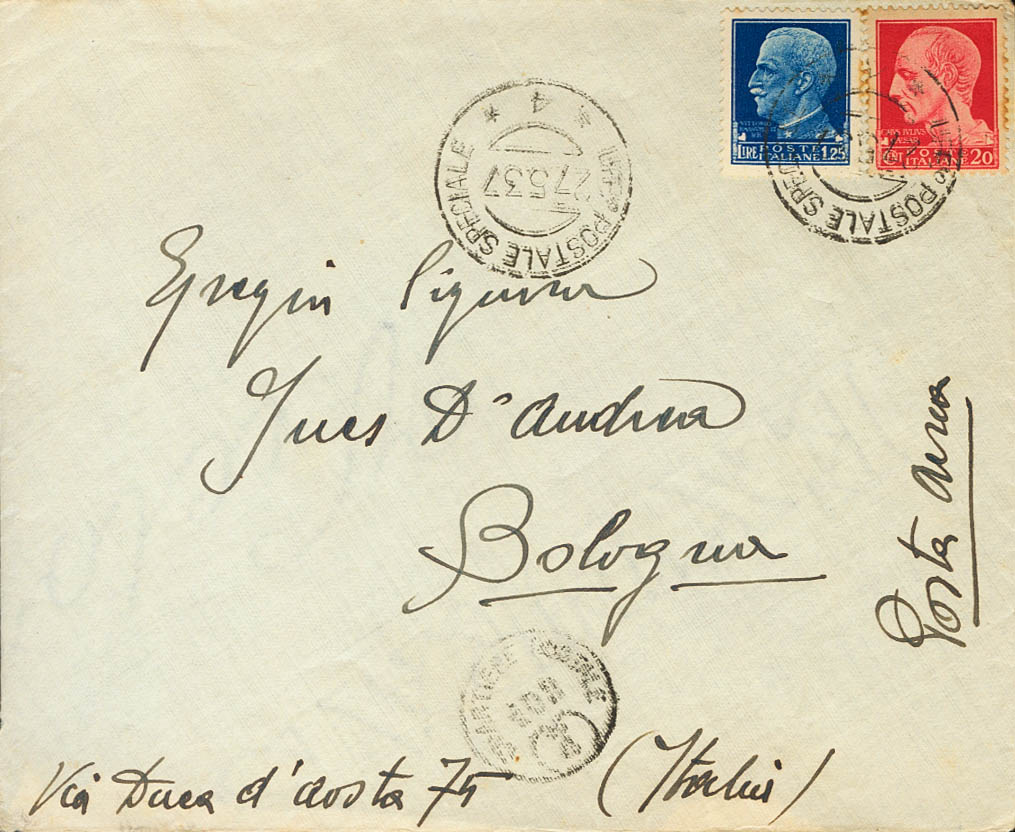 VITTORIO
LIRE POSTE 1.25
ITALIANE
CAIVS IVLIVS
CAESAR
C. POSTE 20
ITALIANE
UFF° POSTALE SPECIALE * 4 *
27.5.37
UFF° POSTALE SPECIALE
Egregia Signora
Ines D'Andrea
Bologna
Posta aerea
Via Duca d'Aosta 75
(Italia)